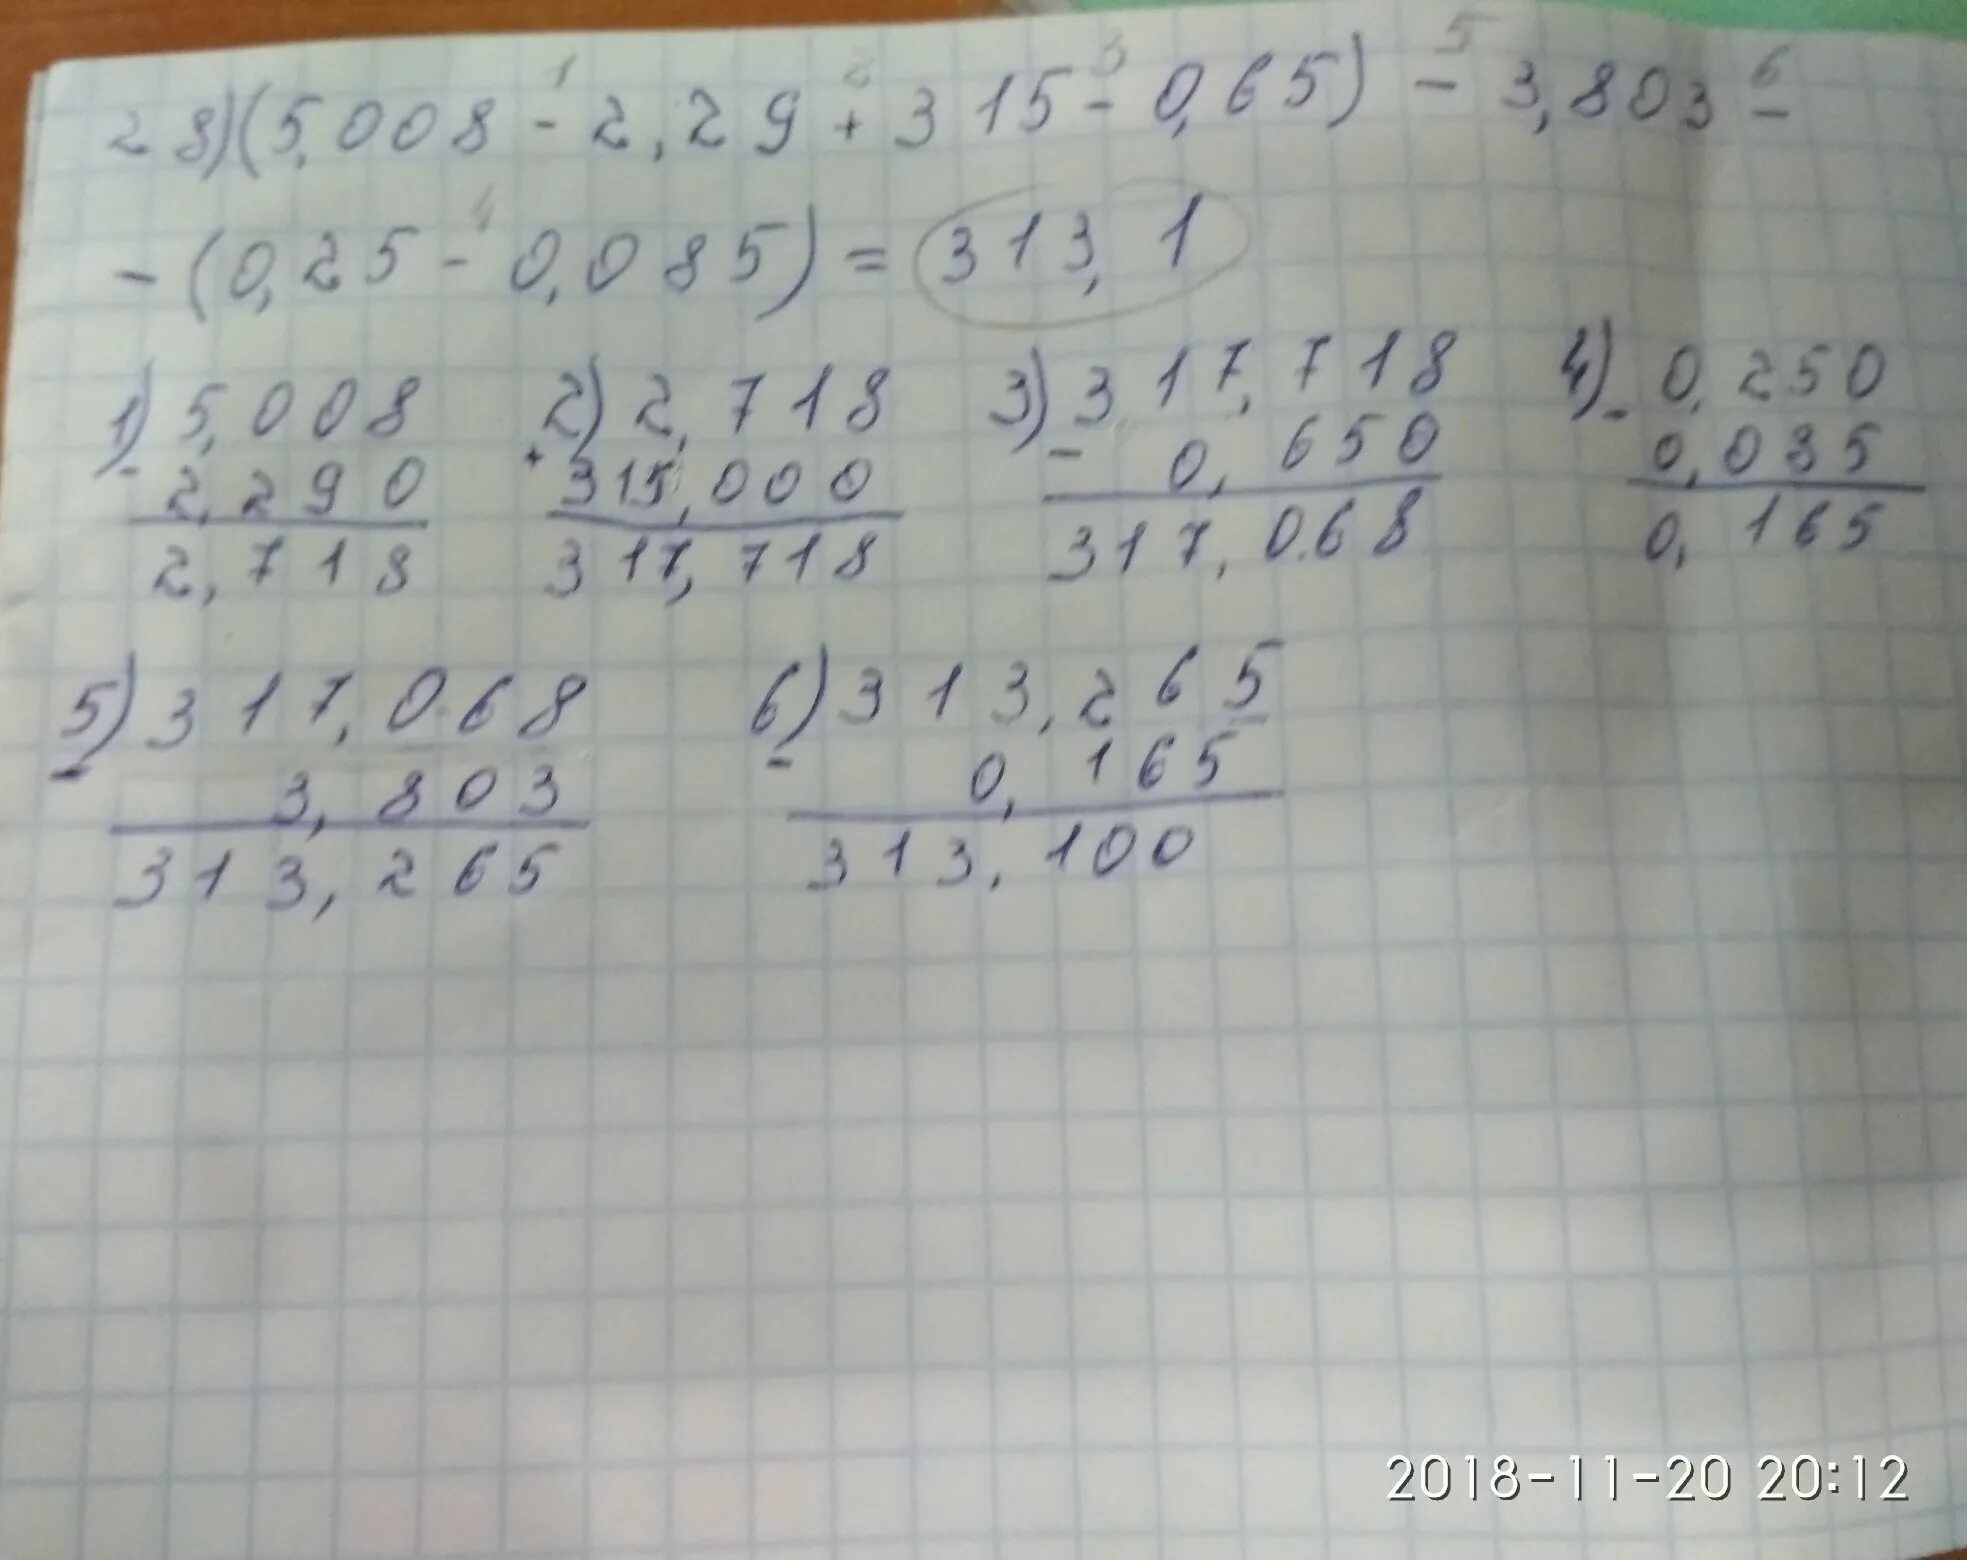 28)(5,008 - 2,29 + 315 - 0,65) - 3,803 -
1 2 3 5 6
- (0,25 - 0,085) = 313,1
4
1) 5,008 2) 2,718 3) 317,718 4) 0,250
- 2,290 + 315,000 - 0,650 - 0,085
2,718 317,718 317,068 0,165
5) 317,068 6) 313,265
- 3,803 - 0,165
313,265 313,100
2018-11-20 20:12